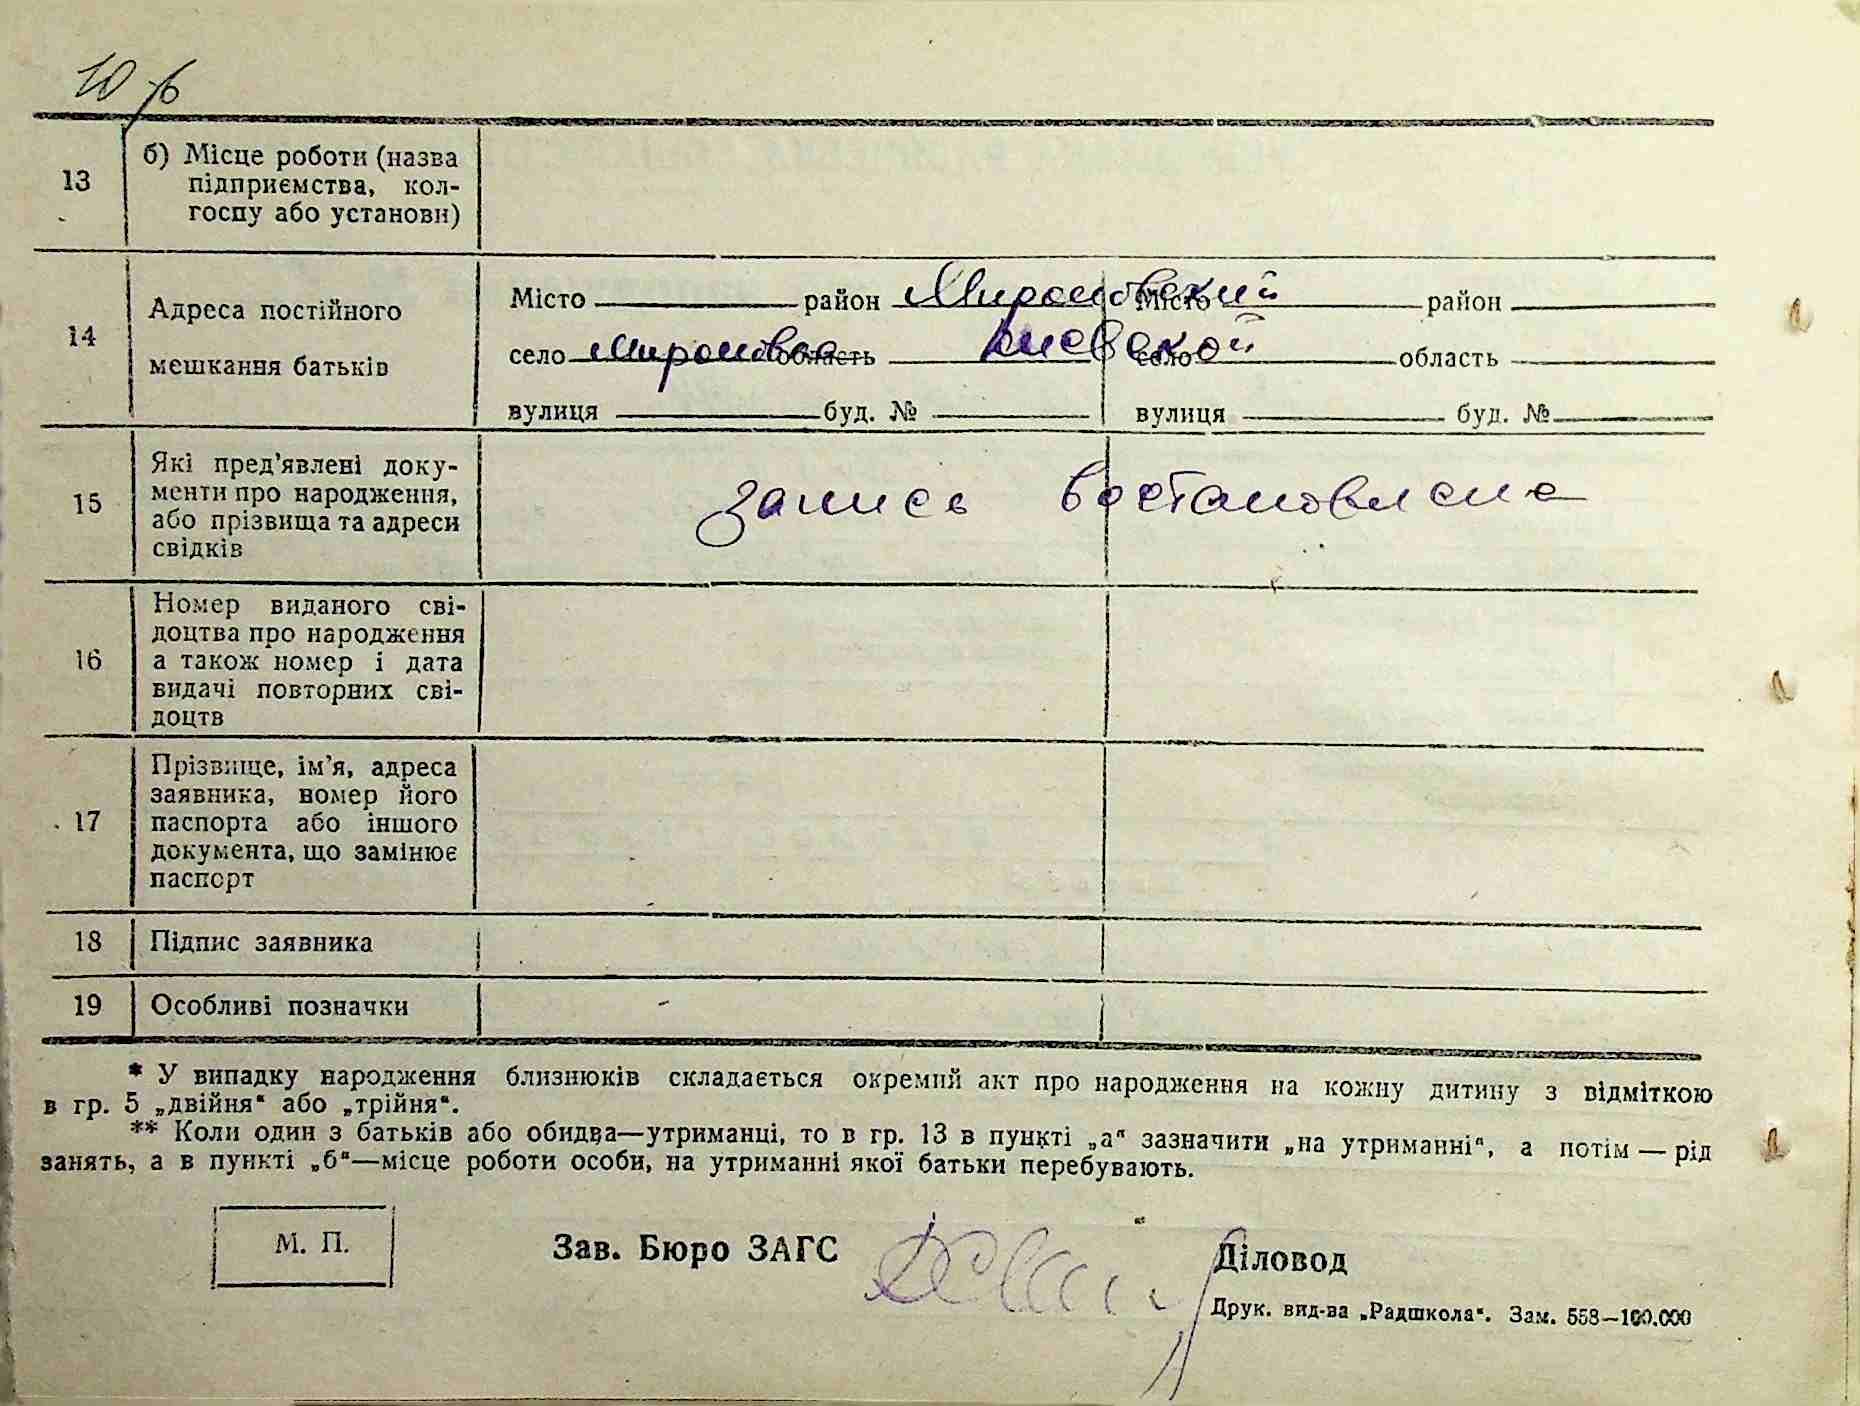 10 б
13 б) Місце роботи (назва
підприємства, кол-
госпу або установи)
14 Адреса постійного
мешкання батьків
Місто район Мироновский Місто район
село Мироновка область Киевской село область
вулиця буд. № вулиця буд. №
15 Які пред’явлені доку-
менти про народження,
або прізвища та адреси
свідків
запись востановлена
16 Номер виданого сві-
доцтва про народження
а також номер і дата
видачі повторних сві-
доцтв
17 Прізвище, ім’я, адреса
заявника, номер його
паспорта або іншого
документа, що замінює
паспорт
18 Підпис заявника
19 Особливі позначки
* У випадку народження близнюків складається окремий акт про народження на кожну дитину з відміткою
в гр. 5 „двійня“ або „трійня“.
** Коли один з батьків або обидва—утриманці, то в гр. 13 в пункті „а“ зазначити „на утриманні“, а потім — рід
занять, а в пункті „б“—місце роботи особи, на утриманні якої батьки перебувають.
М. П.
Зав. Бюро ЗАГС
Діловод
Друк. вид-ва „Радшкола“. Зам. 558—100.000